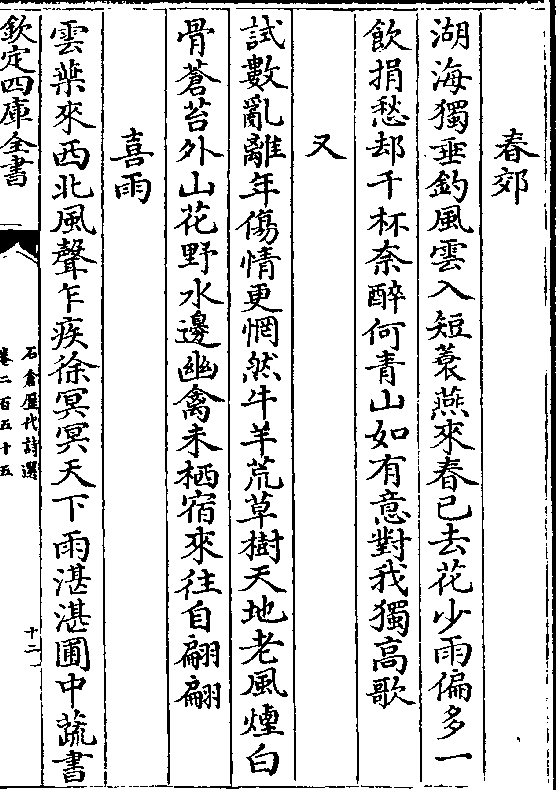 春郊
湖海獨垂釣風雲入短蓑燕來春已去花少雨偏多一
飲捐愁却千杯奈醉何青山如有意對我獨高歌
又
試數亂離年傷情更惘然牛羊荒草樹天地老風煙白
骨蒼苔外山花野水邊幽禽未栖宿來往自翩翩
喜雨
雲葉來西北風聲乍疾徐冥冥天下雨湛湛圃中蔬書
欽定四庫全書
石倉歷代詩選
卷二百五十五
十二